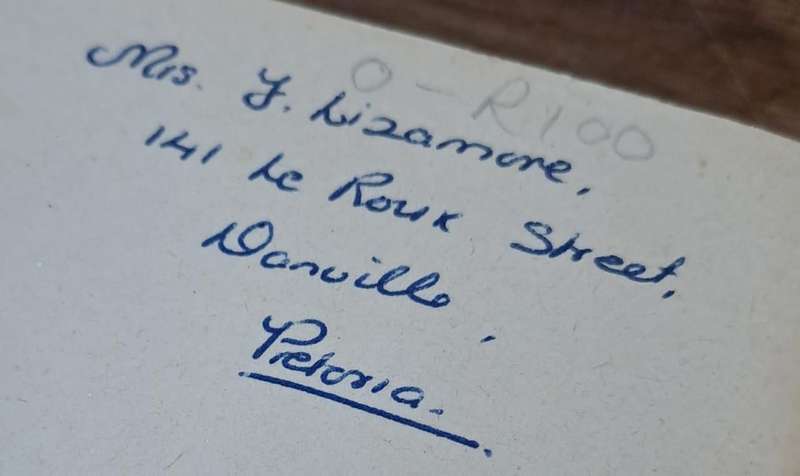 O - R100
Mrs. Y. Lizamore,
141 Le Roux Street,
Danville,
Pretoria.